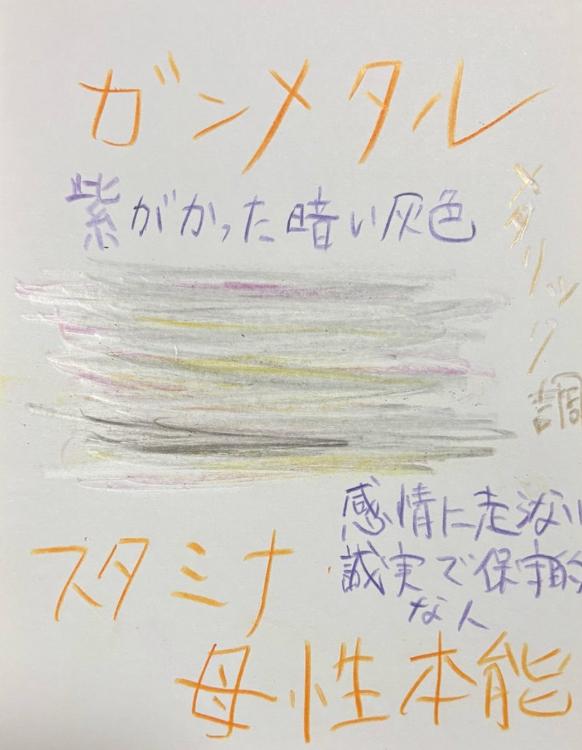 ガンメタル
紫がかった暗い灰色
メタリック調
感情に走らない
誠実で保守的
な人
スタミナ
母性本能